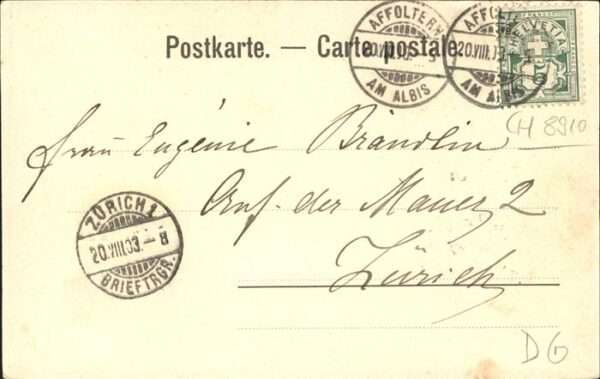 Postkarte. — Carte postale.
AFFOLTERN
20.VIII.03.
AM ALBIS
AFFOLTERN
20.VIII.03
AM ALBIS
HELVETIA
CH 8910
Frau Eugénie Brändlin
Auf der Mauer 2
Zürich
ZÜRICH 1
20.VIII.03.–8
BRIEFTRGR.
DG